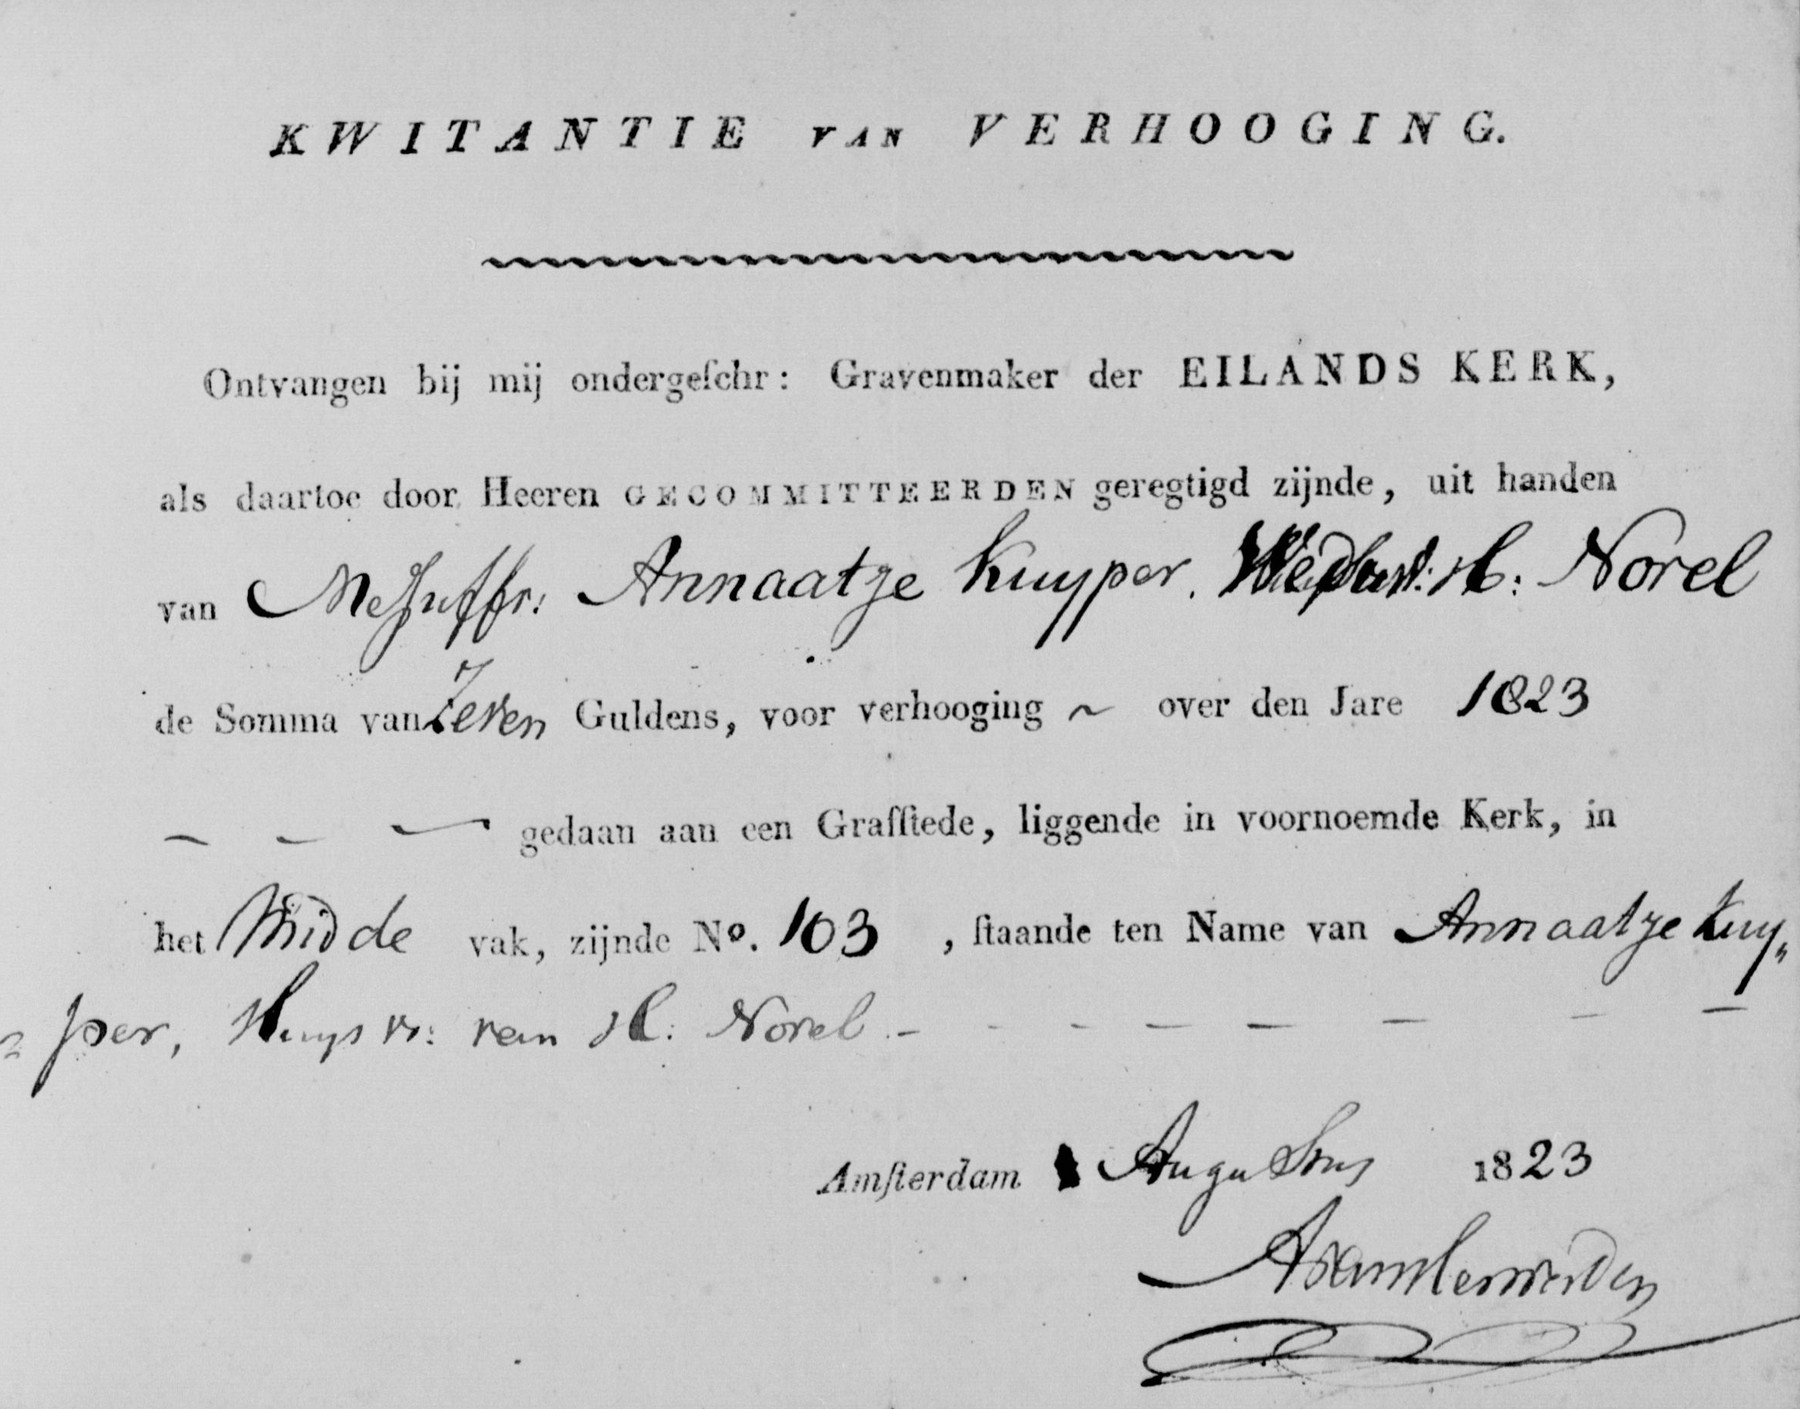 KWITANTIE VAN VERHOOGING.
Ontvangen bij mij ondergeſchr: Gravenmaker der EILANDS KERK,
als daartoe door Heeren GECOMMITTEERDEN geregtigd zijnde, uit handen
van Mejuffr: Annaatje Kuyper. H: Norel
de Somma van Zeven Guldens, voor verhooging ~ over den Jare 1823
gedaan aan een Grafſtede, liggende in voornoemde Kerk, in
het Midde vak, zijnde No. 103, ſtaande ten Name van Annaatje Kuy„
„per, Huysvr: van H: Norel
Amſterdam Augustus 1823